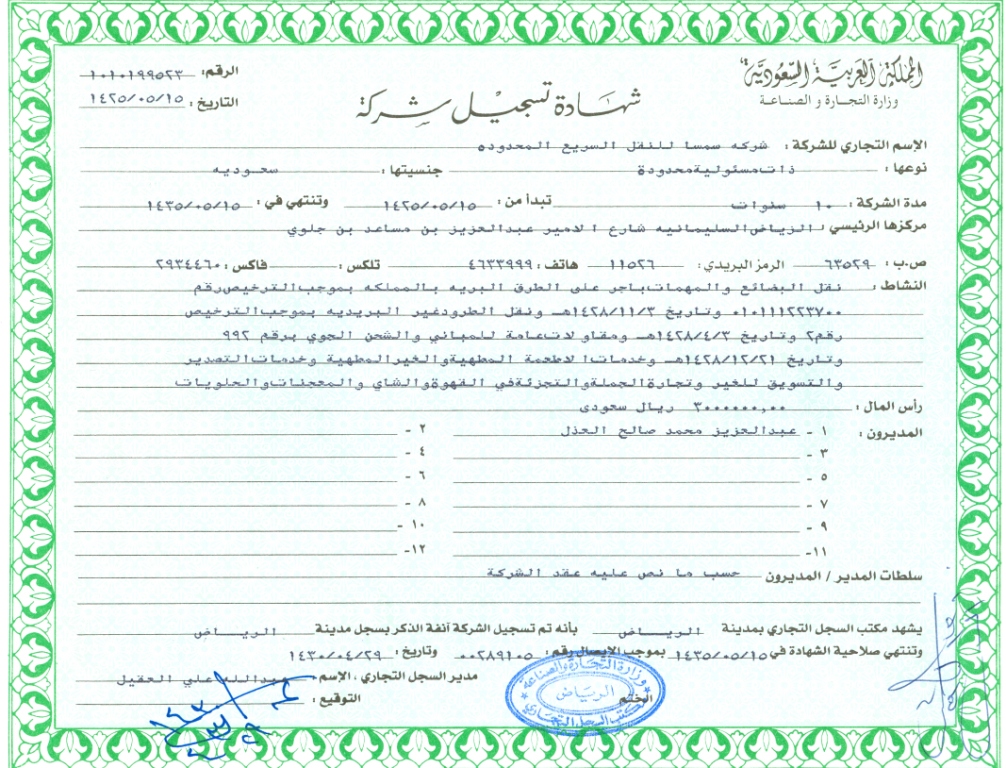 المملكة العربية السعودية
وزارة التجارة و الصناعة
شهادة تسجيل شركة
الرقم: ١٠١٠١٩٩٥٢٣
التاريخ: ١٤٢٥/٠٥/١٥
الإسم التجاري للشركة: شركه سمسا للنقل السريع المحدوده
نوعها: ذات مسئولية محدودة جنسيتها: سعوديه
مدة الشركة: ١٠ سنوات تبدأ من: ١٤٢٥/٠٥/١٥ وتنتهي في: ١٤٣٥/٠٥/١٥
مركزها الرئيسي: الرياض السليمانيه شارع الامير عبدالعزيز بن مساعد بن جلوي
ص.ب: ٦٣٥٢٩ الرمز البريدي: ١١٥٢٦ هاتف: ٤٦٣٣٩٩٩ تلكس: فاكس: ٢٩٣٤٤٦٠
النشاط: نقل البضائع والمهمات باجر على الطرق البريه بالمملكه بموجب الترخيص رقم
٠١٠١١١٢٢٣٧٠٠ وتاريخ ١٤٢٨/١١/٣هـ ونقل الطرود غير البريديه بموجب الترخيص
رقم ٢ وتاريخ ١٤٢٨/٤/٣هـ ومقاولات عامة للمباني والشحن الجوي برقم ٩٩٢
وتاريخ ١٤٢٨/١٢/٢١هـ وخدمات الاطعمة المطهية والغير المطهية وخدمات التصدير
والتسويق للغير وتجارة الجملة والتجزئة في القهوة والشاي والمعجنات والحلويات
رأس المال: ٣٠٠٠٠٠٠,٠٠ ريال سعودى
المديرون: ١ - عبدالعزيز محمد صالح العذل ٢ -
٣ - ٤ -
٥ - ٦ -
٧ - ٨ -
٩ - ١٠ -
١١- ١٢-
سلطات المدير / المديرون حسب ما نص عليه عقد الشركة
يشهد مكتب السجل التجاري بمدينة الرياض بأنه تم تسجيل الشركة آنفة الذكر بسجل مدينة الرياض
وتنتهي صلاحية الشهادة في ١٤٣٥/٠٥/١٥ بموجب الايصال رقم: ٠٠٢٨٩١٠٥ وتاريخ: ١٤٣٠/٠٤/٢٩
مدير السجل التجاري ، الإسم: عبدالله علي العقيل
الختم التوقيع:
وزارة التجارة والصناعة
الرياض
مكتب السجل التجاري